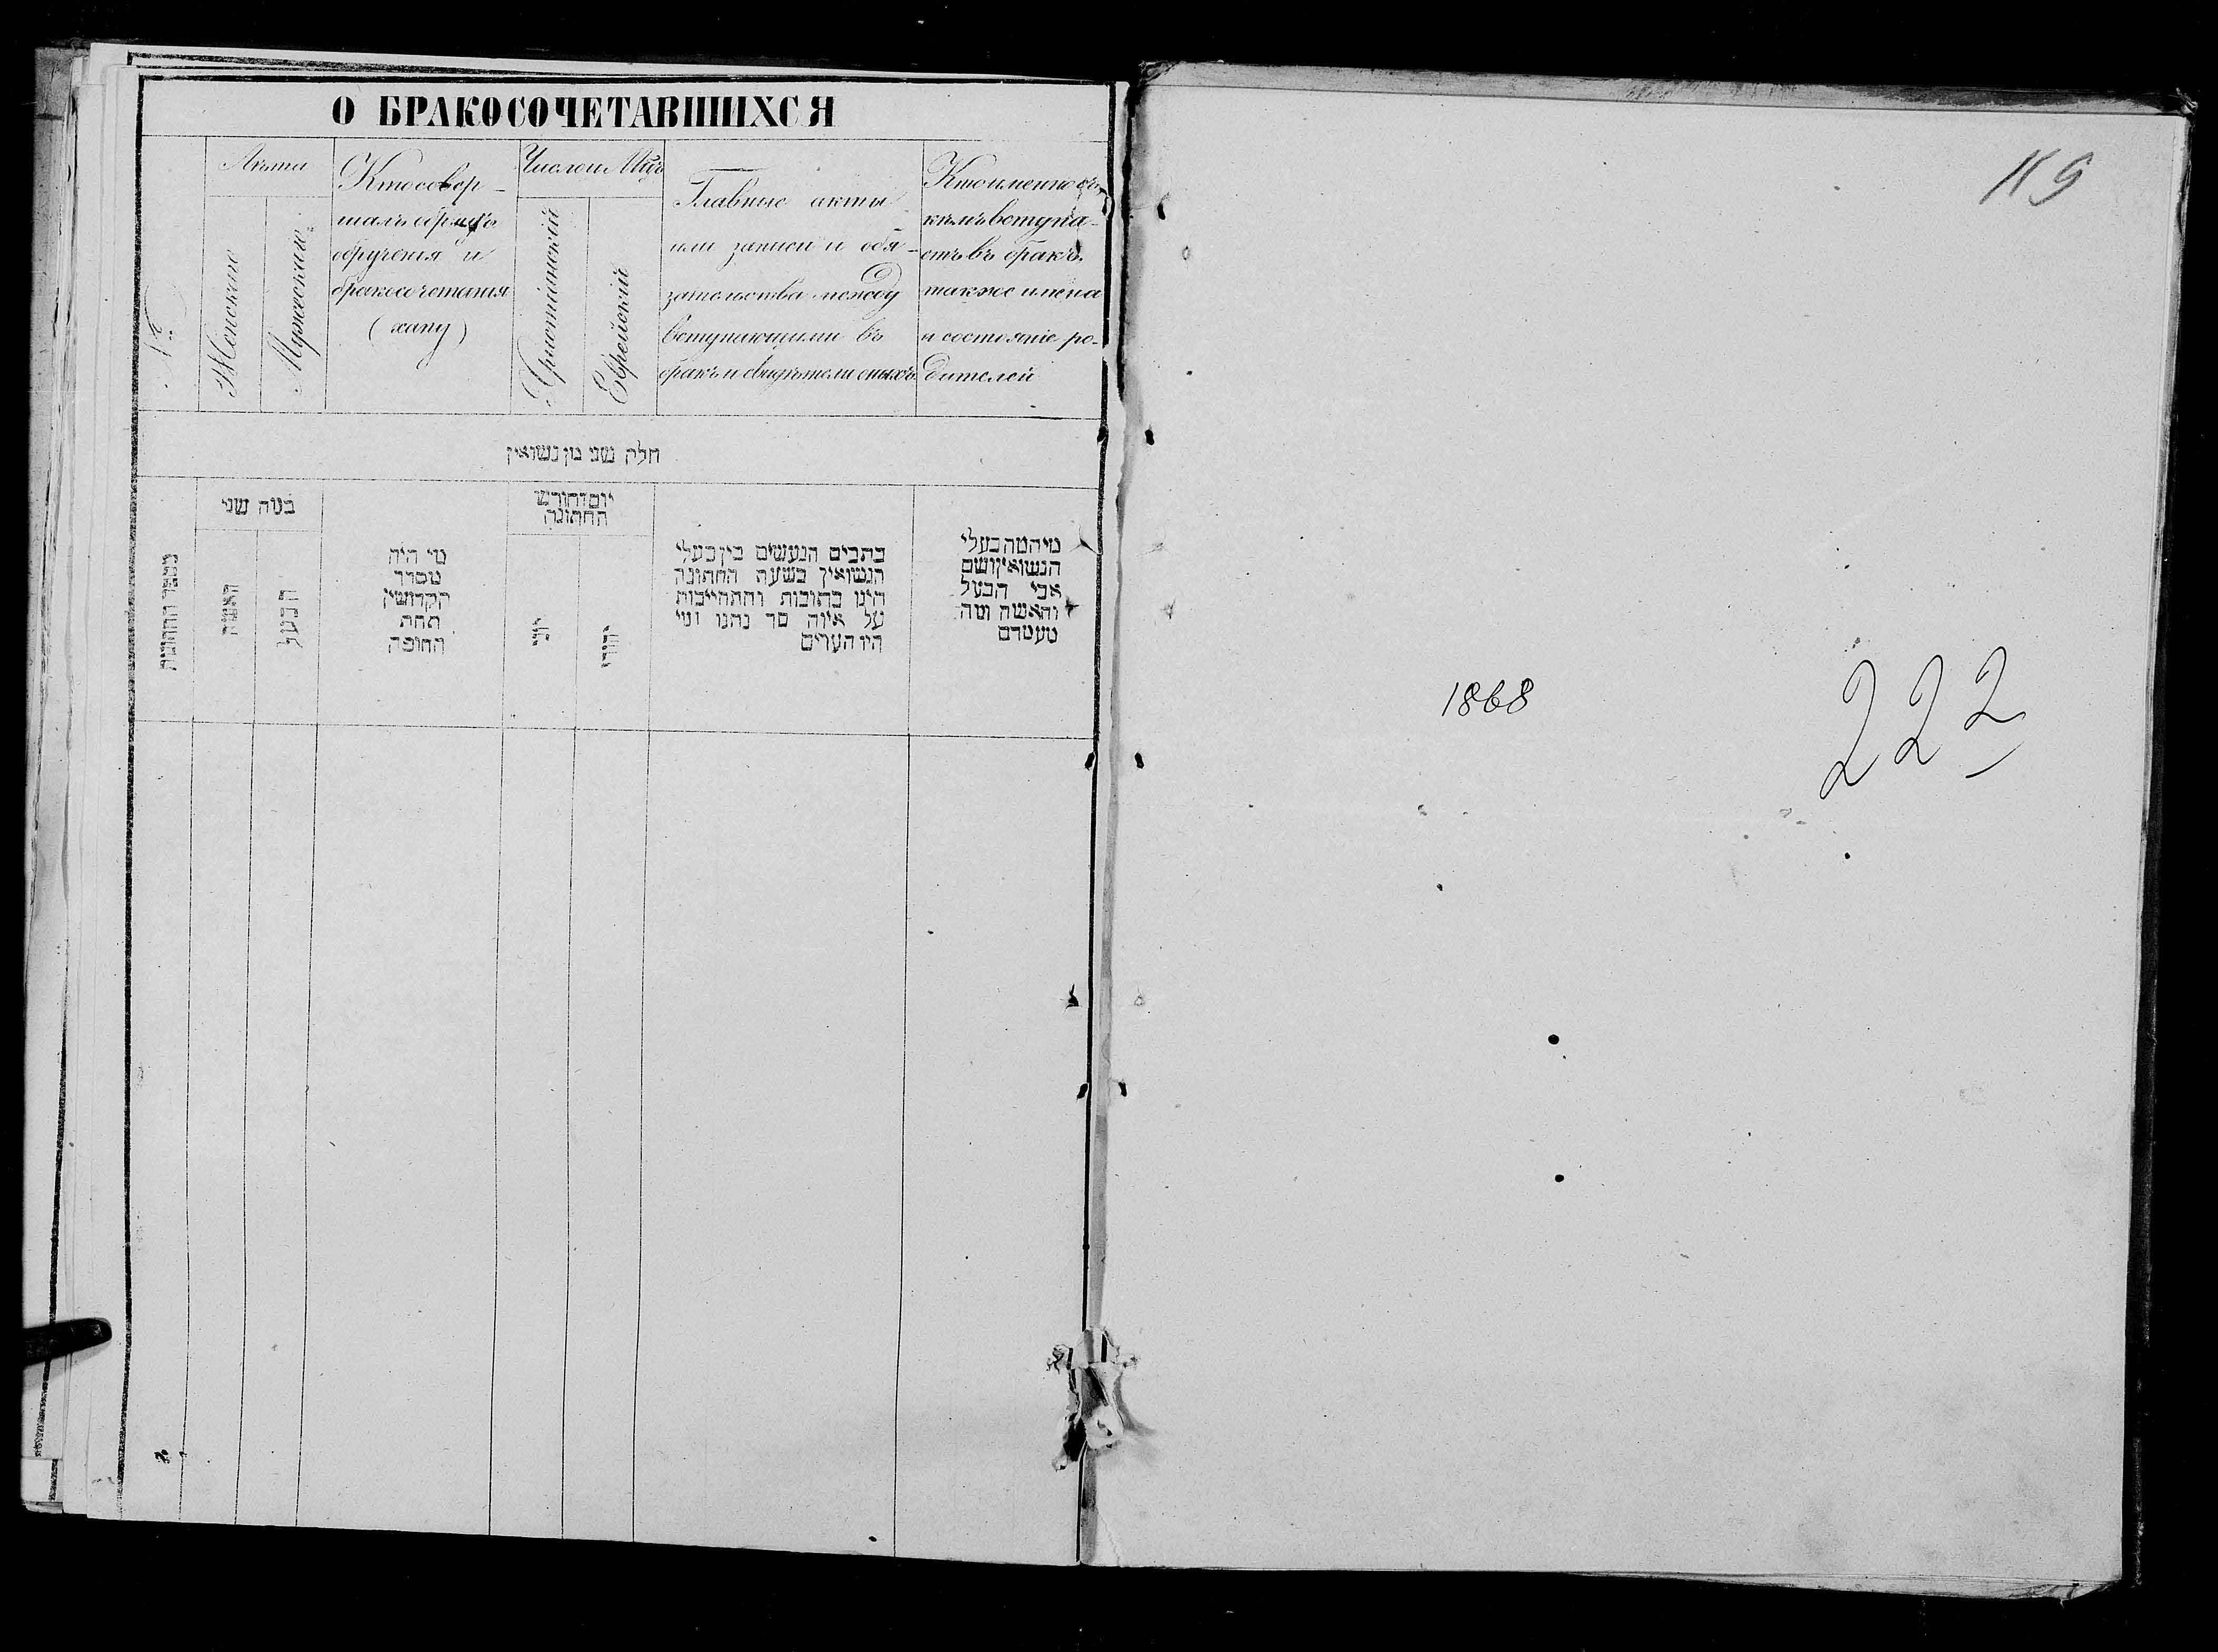 О БРАКОСОЧЕТАВШИХСЯ
№
Лѣта
Женскаго
Мужескаго
Кто совер-
шалъ обрядъ
обрученія и
бракосочетанія
(хапу)
Число и Мѣць
Христіанскій
Еврейскій
Главные акты
или записи и обя-
зательства между
вступающими въ
бракъ и свидѣтели оныхъ
Кто именно съ
кѣмъ вступа-
етъ въ бракъ
также имена
и состояніе ро-
дителей
חלק שני מן נשואין
כמה שני
האשה
הבעל
מי היה
מסדר
הקדושין
תחת
החופה
יום וחודש
החתונה
כתבים הנעשים בין בעלי
הנשואין בשעת החתונה
היינו כתובות והתחייבות
על איזה סך נתנו ומי
היו העדים
מיהמה בעלי
הנשואין ושם
אבי הבעל
והאשה ומה
מעמדם
119
1868
222